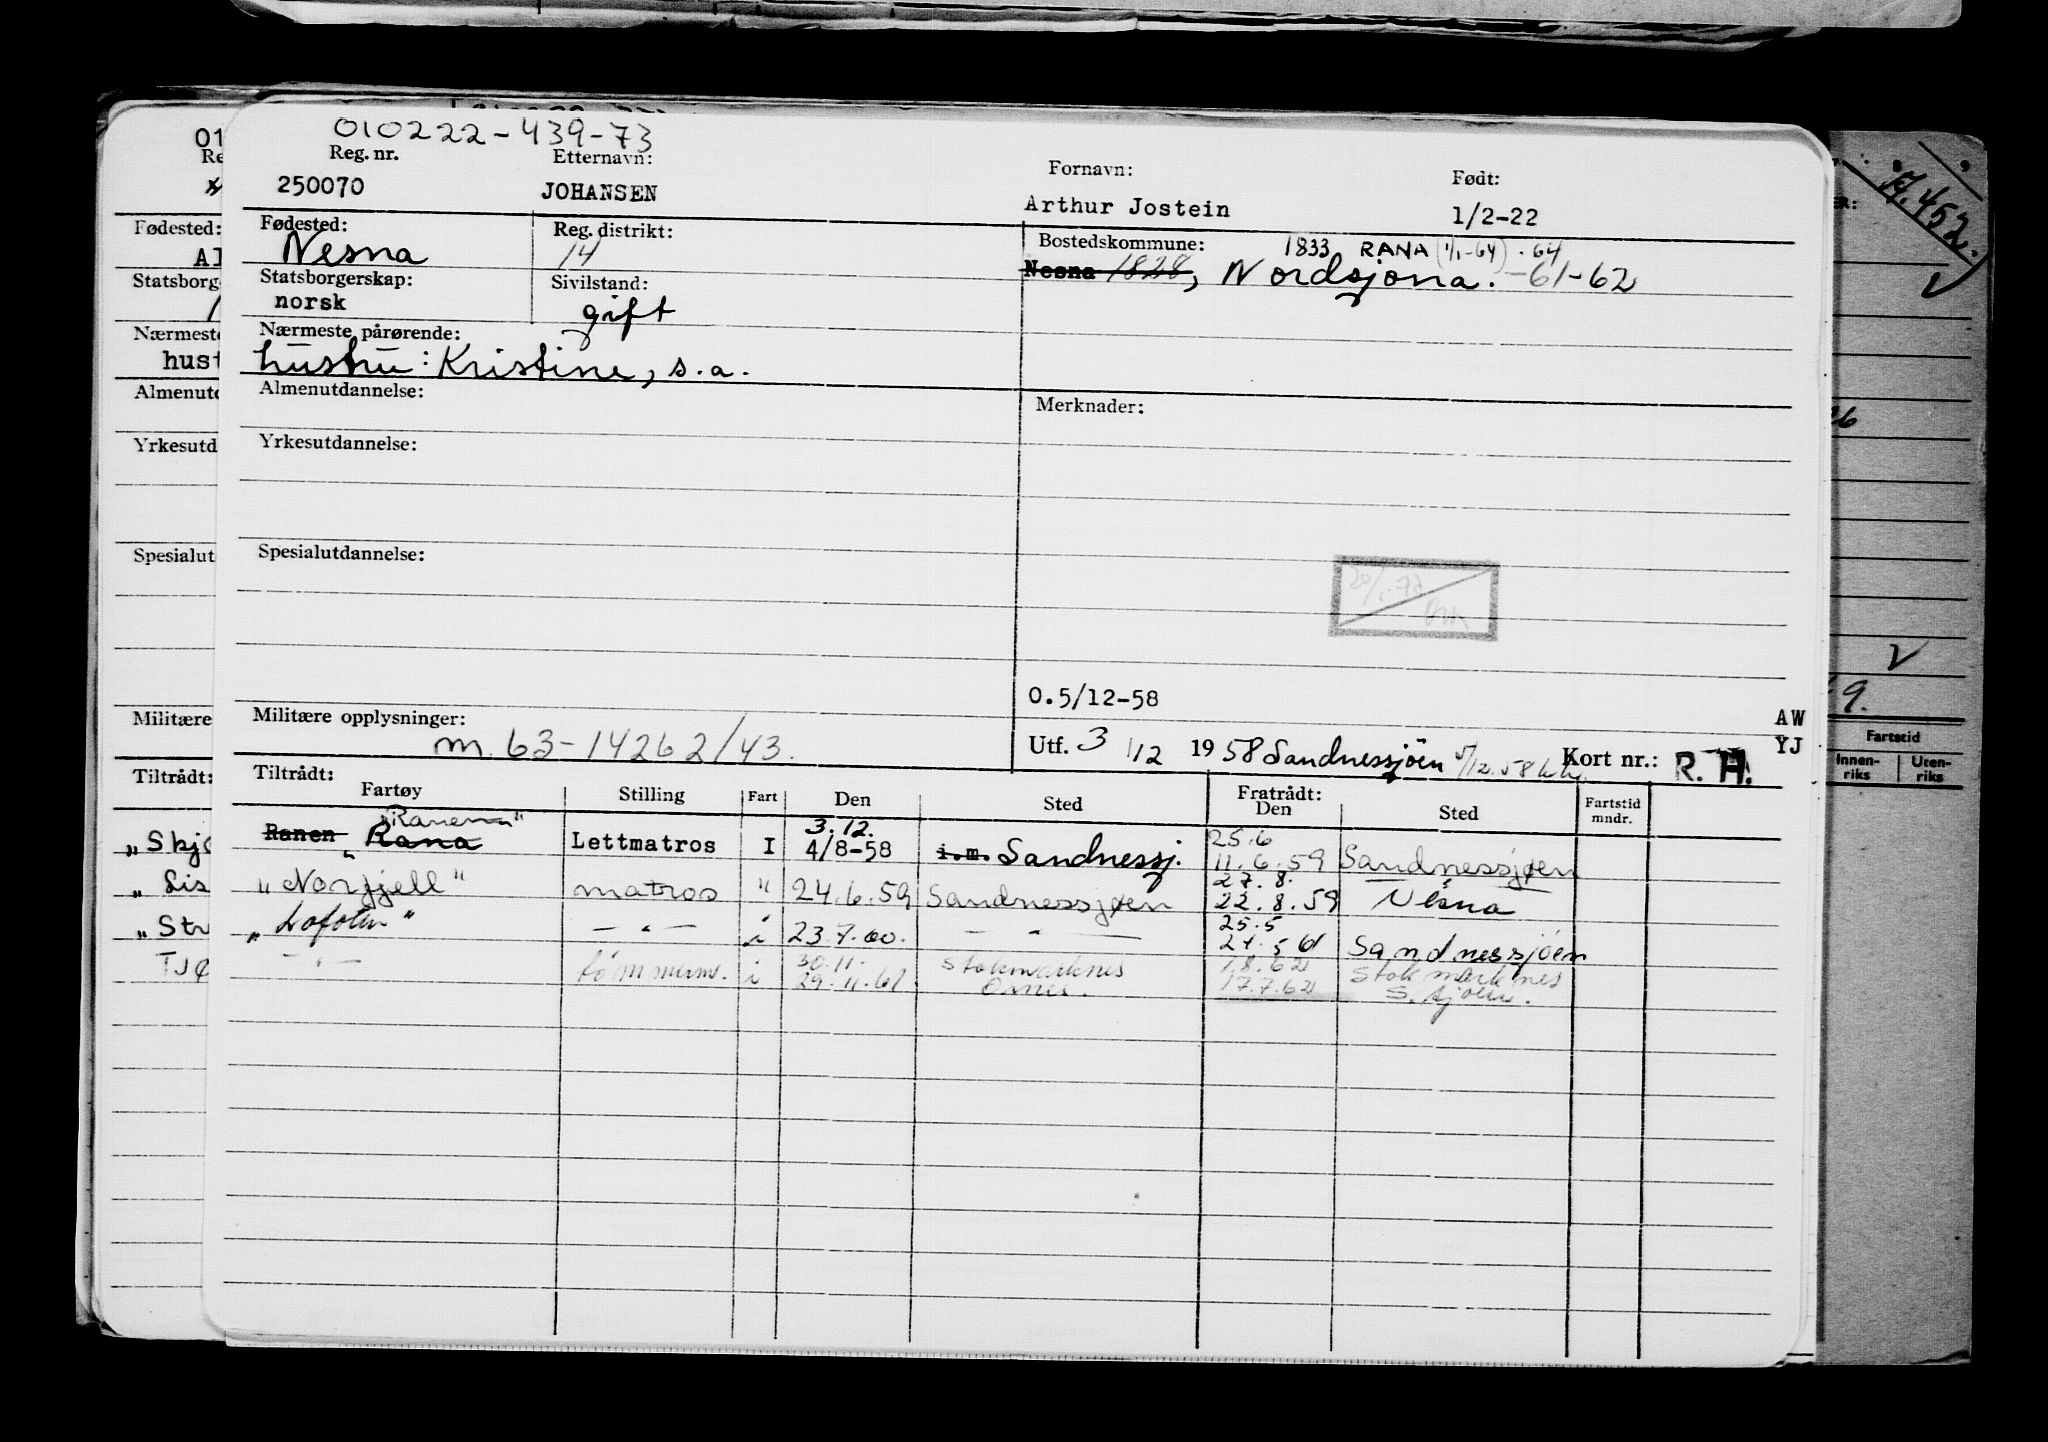 010222-439-73
Reg. nr. Etternavn: Fornavn: Født:
250070 JOHANSEN Arthur Jostein 1/2-22
Fødested: Reg. distrikt: Bostedskommune: 1833 RANA (1/1-64) . 64
Nesna 14 Nesna 1828, Nordsjona. -61-62
Statsborgerskap: Sivilstand:
norsk gift
Nærmeste pårørende:
hustru: Kristine, s.a.
Almenutdannelse: Merknader:
Yrkesutdannelse:
Spesialutdannelse:
0.5/12-58
Militære opplysninger: AW
m. 63-14262/43. Utf. 3/12 1958 Sandnessjöen 5/12.58 Kort nr.: R. H. YJ
Tiltrådt: Fratrådt:
Fartøy Stilling Fart Den Sted Den Sted Fartstid mndr.
"Ranen" 3.12. 25.6
Ranen "Rana Lettmatros I 4/8-58 i.m. Sandnessj. 11.6.59 Sandnessjøen
27.8.
"Norfjell" matros " 24.6.59 Sandnessjøen 22.8.59 Nesna
25.5
"Lofoten" — " — i 23.7.60. — " — 21.5 61 Sandnessjöen
30.11. Stokmarknes 1.8.62 Stokmarknes
— " — tømmerm. i 29.11.61 Ørnes. 17.7.62 S.sjøen.
01
Re
Fødested:
Al
Statsborge
Nærmeste
hust
Almenutd
Yrkesutd
Spesialut
Militære
Tiltrådt:
"Skjø
"Lis
"Str
TJØ
ER:
26
9.
Fartstid
Innen-riks Uten-riks